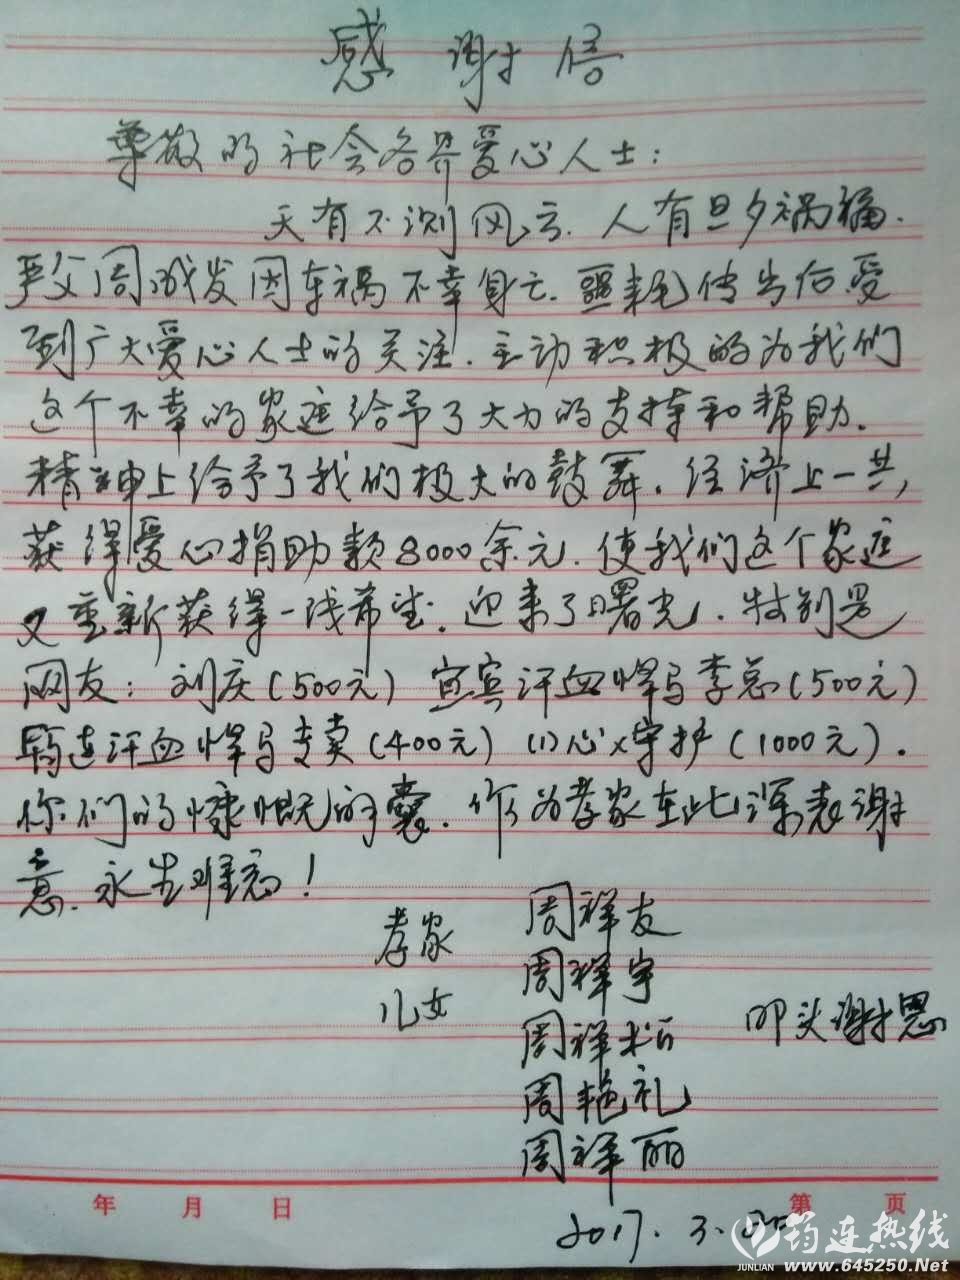 感谢信
尊敬的社会各界爱心人士：
天有不测风云.人有旦夕祸福.
严父周成发因车祸不幸身亡.噩耗传出后.受
到广大爱心人士的关注.主动积极的为我们
这个不幸的家庭给予了大力的支持和帮助.
精神上给予了我们极大的鼓舞.经济上一共,
获得爱心捐助款8000余元.使我们这个家庭
又重新获得一线希望.迎来了曙光.特别是
网友：刘庆(500元) 宜宾汗血悍马李总(500元)
筠连汗血悍马专卖(400元) 心x守护(1000元).
你们的慷慨的囊.作为孝家在此深表谢
意.永生难忘!
孝家 周祥友
儿女 周祥宇
周祥 叩头谢恩
周艳礼
周祥丽
年 月 日 第 页
2017.3.
筠连热线
JUNLIAN www.645250.Net